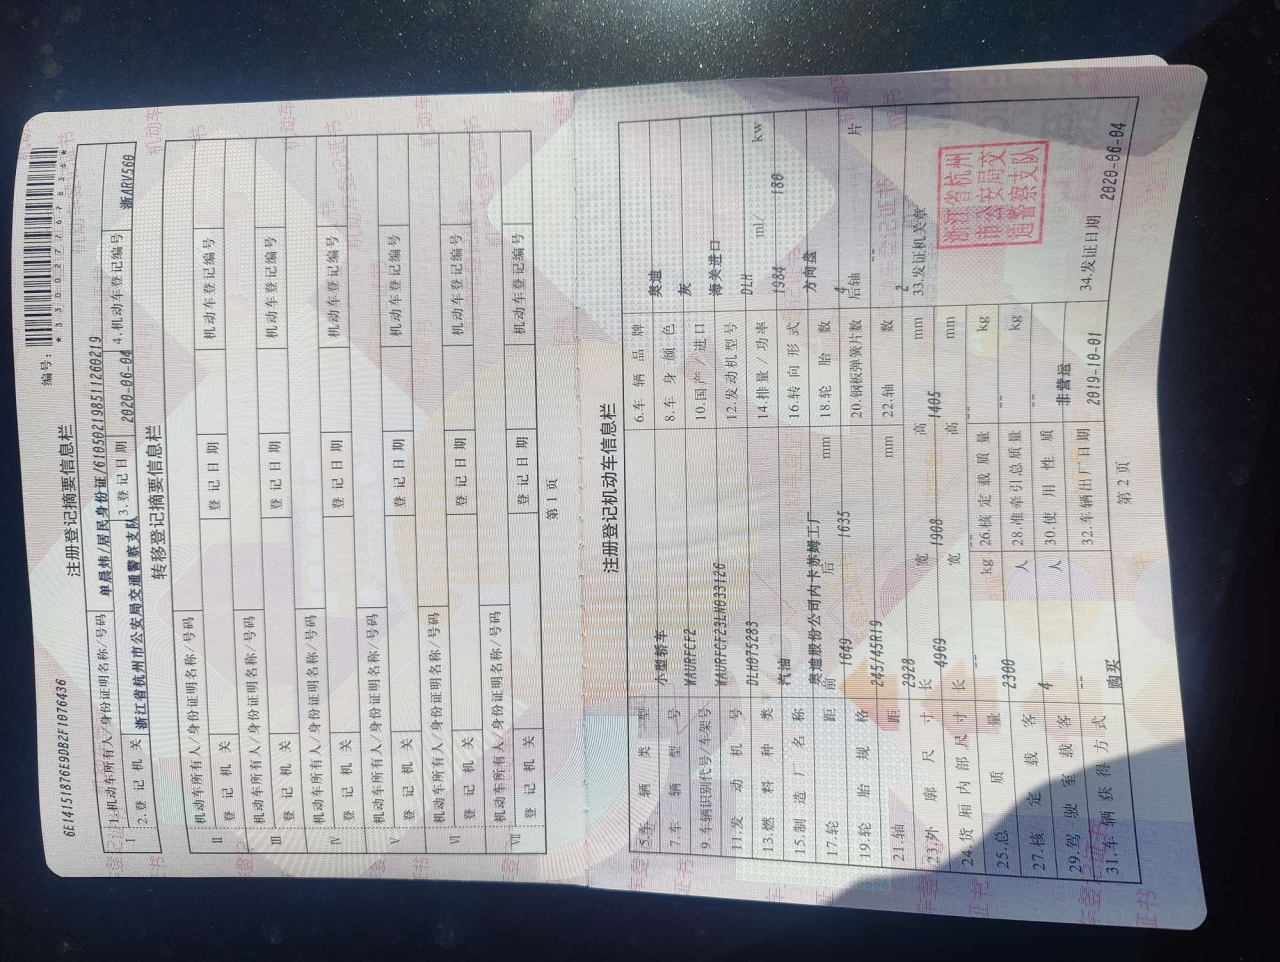 编号:
*330027767836*
6E14151876E9DB2F1076436
注册登记摘要信息栏
I 1.机动车所有人/身份证明名称/号码 单晨炜/居民身份证/610502198511260219
2.登记机关 浙江省杭州市公安局交通警察支队 3.登记日期 2020-06-04 4.机动车登记编号 浙ARV560
转移登记摘要信息栏
II 机动车所有人/身份证明名称/号码
登记机关 登记日期 机动车登记编号
III 机动车所有人/身份证明名称/号码
登记机关 登记日期 机动车登记编号
IV 机动车所有人/身份证明名称/号码
登记机关 登记日期 机动车登记编号
V 机动车所有人/身份证明名称/号码
登记机关 登记日期 机动车登记编号
VI 机动车所有人/身份证明名称/号码
登记机关 登记日期 机动车登记编号
VII 机动车所有人/身份证明名称/号码
登记机关 登记日期 机动车登记编号
第1页
注册登记机动车信息栏
5.车辆类型 小型轿车 6.车辆品牌 奥迪
7.车辆型号 WAURFCF2 8.车身颜色 灰
9.车辆识别代号/车架号 WAURFCF23LN033126 10.国产/进口 海关进口
11.发动机号 DLH075283 12.发动机型号 DLH
13.燃料种类 汽油 14.排量/功率 1984 ml/ 180 kw
15.制造厂名称 奥迪股份公司内卡苏姆工厂 16.转向形式 方向盘
17.轮距 前 1649 后 1635 mm 18.轮胎数 4
19.轮胎规格 245/45R19 20.钢板弹簧片数 后轴 -- 片
21.轴距 2928 mm 22.轴数 2
23.外廓尺寸 长 4969 宽 1908 高 1405 mm 33.发证机关章
24.货厢内部尺寸 长 -- 宽 -- 高 -- mm
浙江省杭州
市公安局交
通警察支队
25.总质量 2300 kg 26.核定载质量 -- kg
27.核定载客 4 人 28.准牵引总质量 -- kg
29.驾驶室载客 -- 人 30.使用性质 非营运
31.车辆获得方式 购买 32.车辆出厂日期 2019-10-01 34.发证日期 2020-06-04
第2页